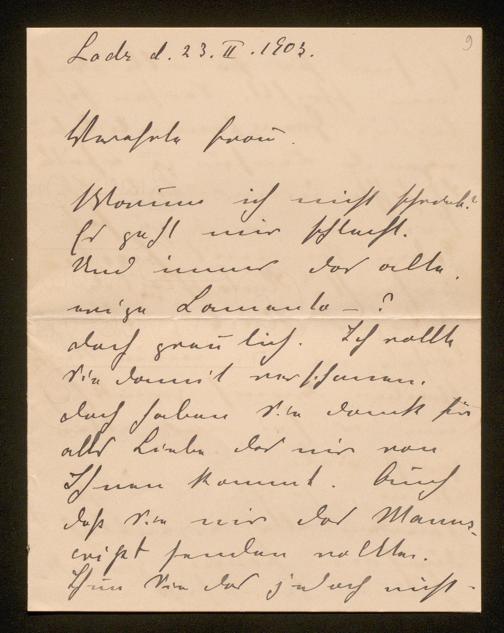 9
Lodz d. 23. II. 1903.
Verehrte Frau.
Warum ich nicht schreib?
Es geht mir schlecht.
Und immer das alte,
ewige Lamento – ?
doch greulich. Ich wollte
Sie damit verschonen.
doch haben Sie dank für
alle Liebe das mir von
Ihnen kommt. Auch
daß Sie mir das Manus-
cript senden wollten.
Thun Sie das jedoch nicht –